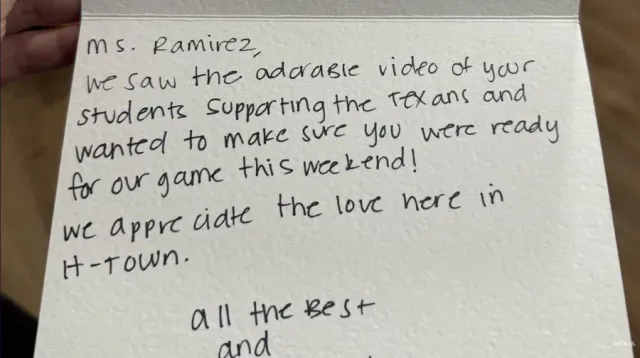 Ms. Ramirez,
we saw the adorable video of your
students supporting the Texans and
wanted to make sure you were ready
for our game this weekend!
we appreciate the love here in
H-Town.
all the Best
and